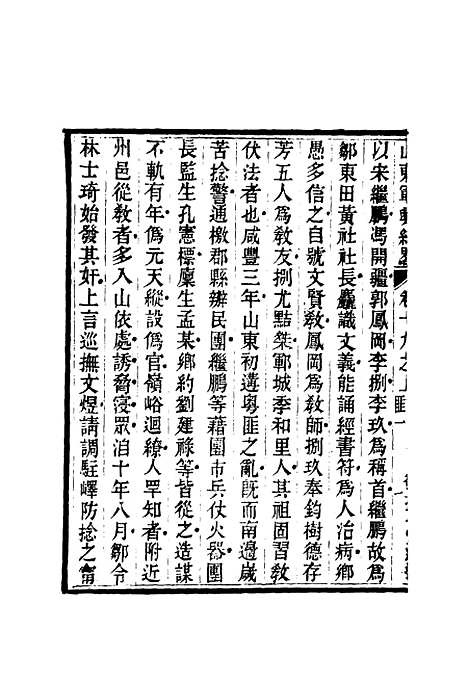 山東軍興紀略 卷十九之上 匪一
以宋繼鵬馮開疆郭鳳岡李捌李玖為稱首繼鵬故為
鄒東田黃社社長麤識文義能誦經書符為人治病鄉
愚多信之自號文賢敎鳳岡為敎師捌玖奉鈞樹德存
芳五人為敎友捌尤黠桀鄆城季和里人其祖固習敎
伏法者也咸豐三年山東初遘粵匪之亂旣而南邊歲
苦捻警通檄郡縣辦民團繼鵬等藉團市兵仗火器團
長監生孔憲標廩生孟某鄉約劉建祿等皆從之造謀
不軌有年偽元天縱設偽官嶺峪迴繚人罕知者附近
州邑從敎者多入山依處誘脅寖眾洎十年八月鄒令
林士琦始發其奸上言巡撫文煜請調駐嶧防捻之甯